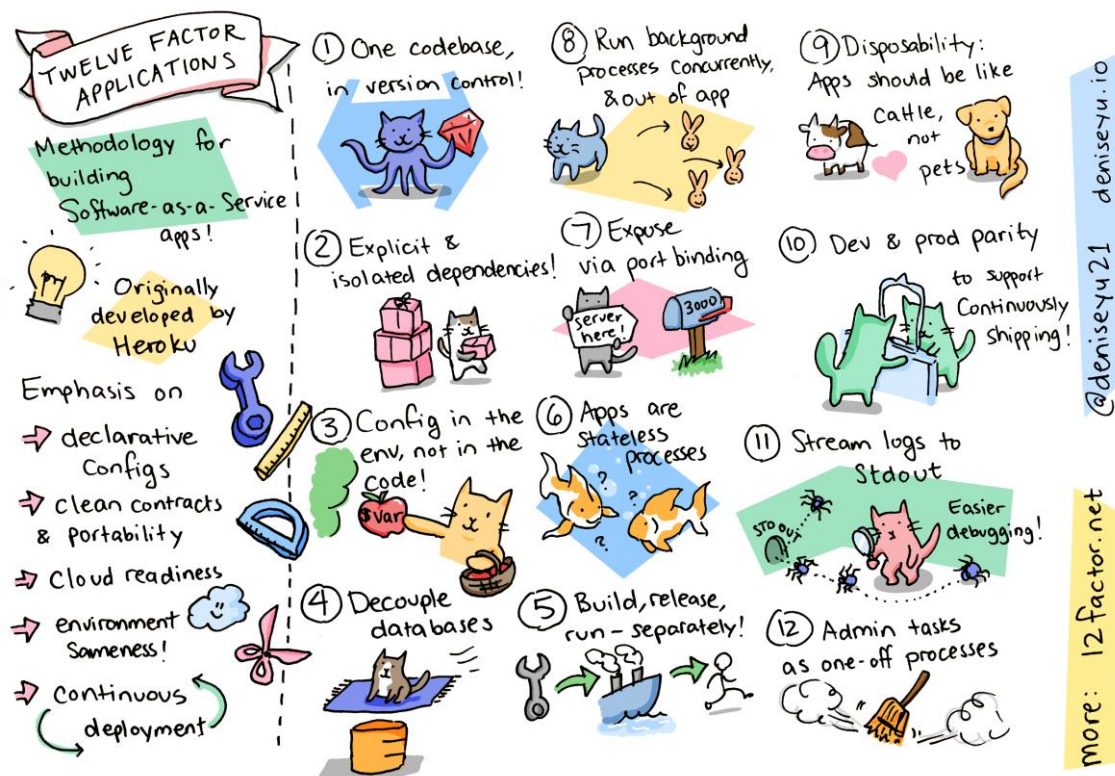 TWELVE FACTOR
APPLICATIONS
Methodology for
building
Software-as-a-Service
apps!
Originally
developed by
Heroku
Emphasis on
declarative
Configs
clean contracts
& portability
Cloud readiness
environment
Sameness!
continuous
deployment
① One codebase,
in version control!
② Explicit &
isolated dependencies!
③ Config in the
env, not in the
code!
$Var
④ Decouple
databases
⑤ Build, release,
run – separately!
⑥ Apps are
stateless
processes
?
?
?
?
⑦ Expose
via port binding
server
here!
3000
⑧ Run background
processes concurrently,
& out of app
⑨ Disposability:
Apps should be like
Cattle,
not
pets
⑩ Dev & prod parity
to support
Continuously
shipping!
⑪ Stream logs to
Stdout
STDOUT
Easier
debugging!
⑫ Admin tasks
as one-off processes
@deniseyu21 deniseyu.io
more: 12factor.net